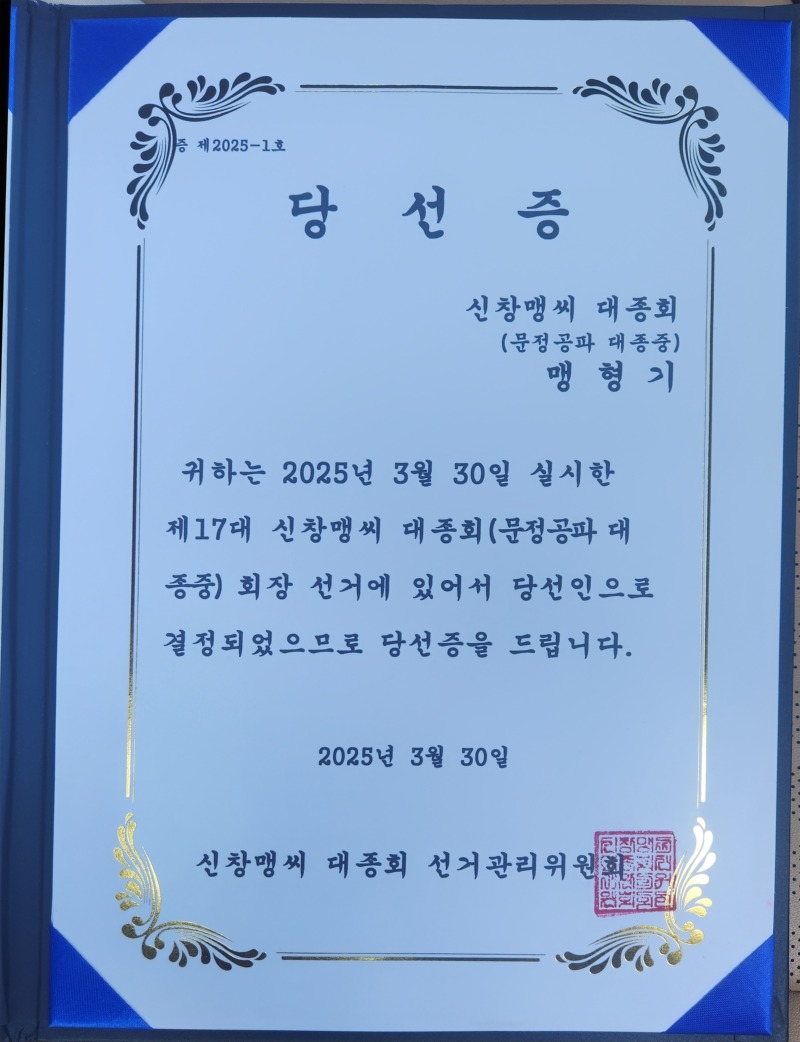 증 제2025-1호
당 선 증
신창맹씨 대종회
(문정공파 대종중)
맹 형 기
귀하는 2025년 3월 30일 실시한
제17대 신창맹씨 대종회(문정공파 대
종중) 회장 선거에 있어서 당선인으로
결정되었으므로 당선증을 드립니다.
2025년 3월 30일
신창맹씨 대종회 선거관리위원회